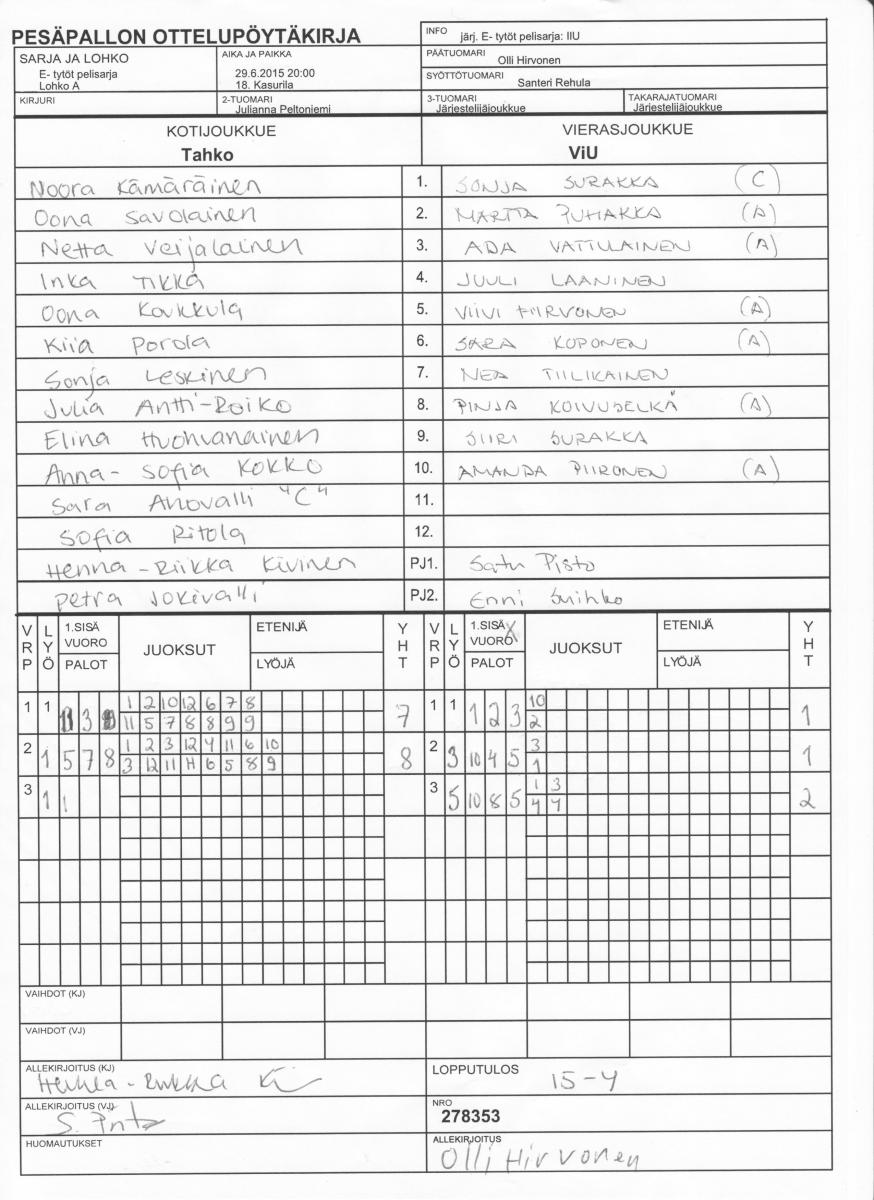 PESÄPALLON OTTELUPÖYTÄKIRJA
INFO järj. E- tytöt pelisarja: IIU
SARJA JA LOHKO
E- tytöt pelisarja
Lohko A
AIKA JA PAIKKA
29.6.2015 20:00
18. Kasurila
PÄÄTUOMARI
Olli Hirvonen
SYÖTTÖTUOMARI
Santeri Rehula
KIRJURI
2-TUOMARI
Julianna Peltoniemi
3-TUOMARI
Järjestelijäjoukkue
TAKARAJATUOMARI
Järjestelijäjoukkue
KOTIJOUKKUE
Tahko
VIERASJOUKKUE
ViU
Noora Kämäräinen 1. SONJA SURAKKA (C)
Oona Savolainen 2. MARTTA PUHAKKA (A)
Netta Veijalainen 3. ADA VATTULAINEN (A)
Inka Tikka 4. JUULI LAANINEN
Oona Koukkula 5. VIIVI HIRVONEN (A)
Kiia Porola 6. SARA KOPONEN (A)
Sonja Leskinen 7. NEA TIILIKAINEN
Julia Antti-Roiko 8. PINJA KOIVUSELKÄ (A)
Elina Huohvanainen 9. SIIRI SURAKKA
Anna-Sofia Kokko 10. AMANDA PIIRONEN (A)
Sara Ahovalli "C" 11.
Sofia Ritola 12.
Henna-Riikka Kivinen PJ1. Satu Pisto
Petra Jokivalli PJ2. Enni
VRP LYÖ 1.SISÄ VUORO PALOT JUOKSUT ETENIJÄ LYÖJÄ YHT VRP LYÖ 1.SISÄ VUORO X PALOT JUOKSUT ETENIJÄ LYÖJÄ YHT
1 1 3 1 2 10 12 6 7 8 7 1 1 1 2 3 10 1
11 5 7 8 8 9 9 2
2 1 5 7 8 1 2 3 12 4 11 6 10 8 2 3 10 4 5 3 1
3 12 11 4 6 5 8 9 1
3 1 1 3 5 10 8 5 1 3 2
4 4
VAIHDOT (KJ)
VAIHDOT (VJ)
ALLEKIRJOITUS (KJ) Henna-Riikka Ki
LOPPUTULOS 15-4
ALLEKIRJOITUS (VJ) S.
NRO
278353
HUOMAUTUKSET
ALLEKIRJOITUS
Olli Hirvonen